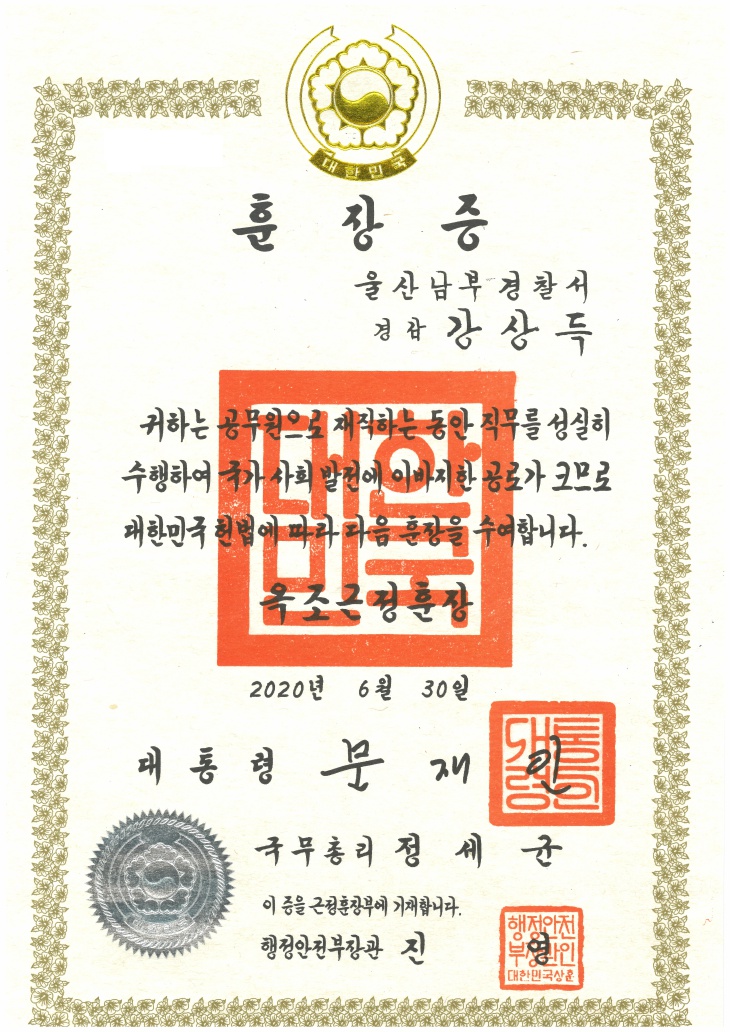 대한민국
훈장증
울산남부경찰서
경감 강상득
귀하는 공무원으로 재직하는 동안 직무를 성실히
수행하여 국가 사회 발전에 이바지한 공로가 크므로
대한민국 헌법에 따라 다음 훈장을 수여합니다.
대한민국
옥조근정훈장
2020년 6월 30일
대통령 문재인
대통령의인
국무총리 정세균
이 증을 근정훈장부에 기재합니다.
행정안전부장관 진영
행정안전
부장관인
대한민국상훈